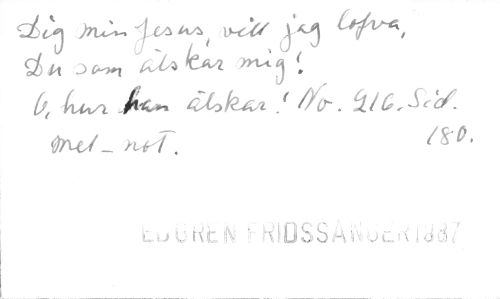 Dig min Jesus, vill jag lofva,
Du som älskar mig!
O, hur han älskar! No. 216. Sid.
180.
Mel-not.
EDGREN FRIDSSÅNGER 1887